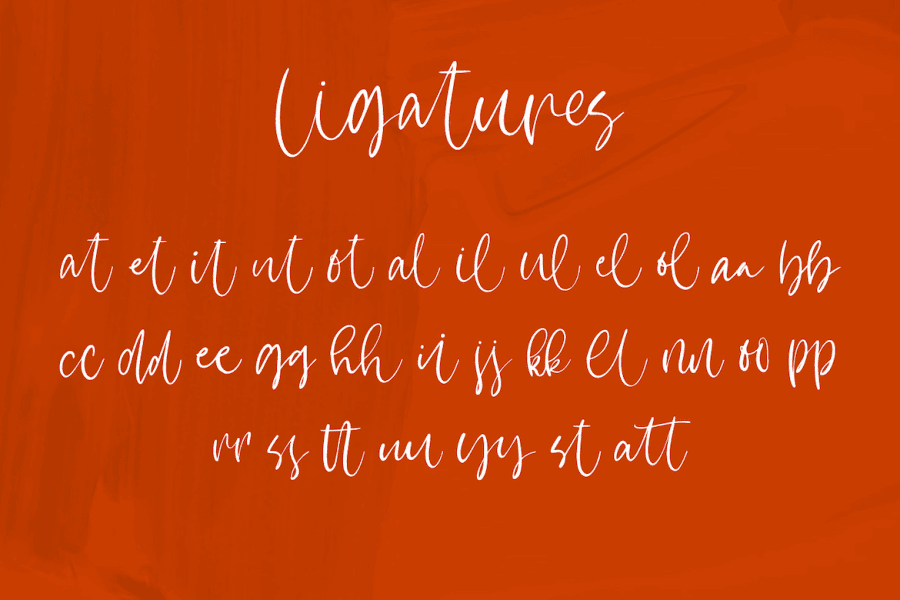 ligatures
at et it ut ot al il ul el ol aa bb
cc dd ee gg hh ii jj kk ll nn oo pp
rr ss tt uu yy st att